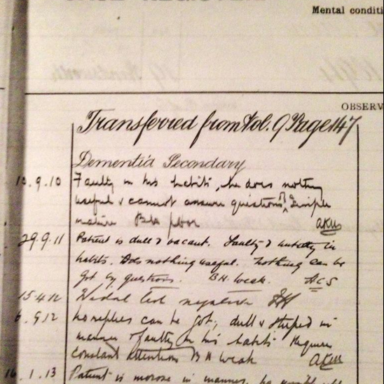 Mental conditi
OBSERV
Transferred from Vol. 9 Page 147
Dementia Secondary
10.9.10 Faulty in his habits, he does nothing
useful & cannot answer questions of simple
nature B.H. poor
29.9.11 Patient is dull & vacant. Faulty & untidy in
habits. Does nothing useful. Nothing can be
got by questions. B.H. weak. ACS
15.4.12
6.9.12 No replies can be got, dull & stupid in
manner & faulty in his habits Requires
constant attention B H weak
1.13 Patient is morose in manner,